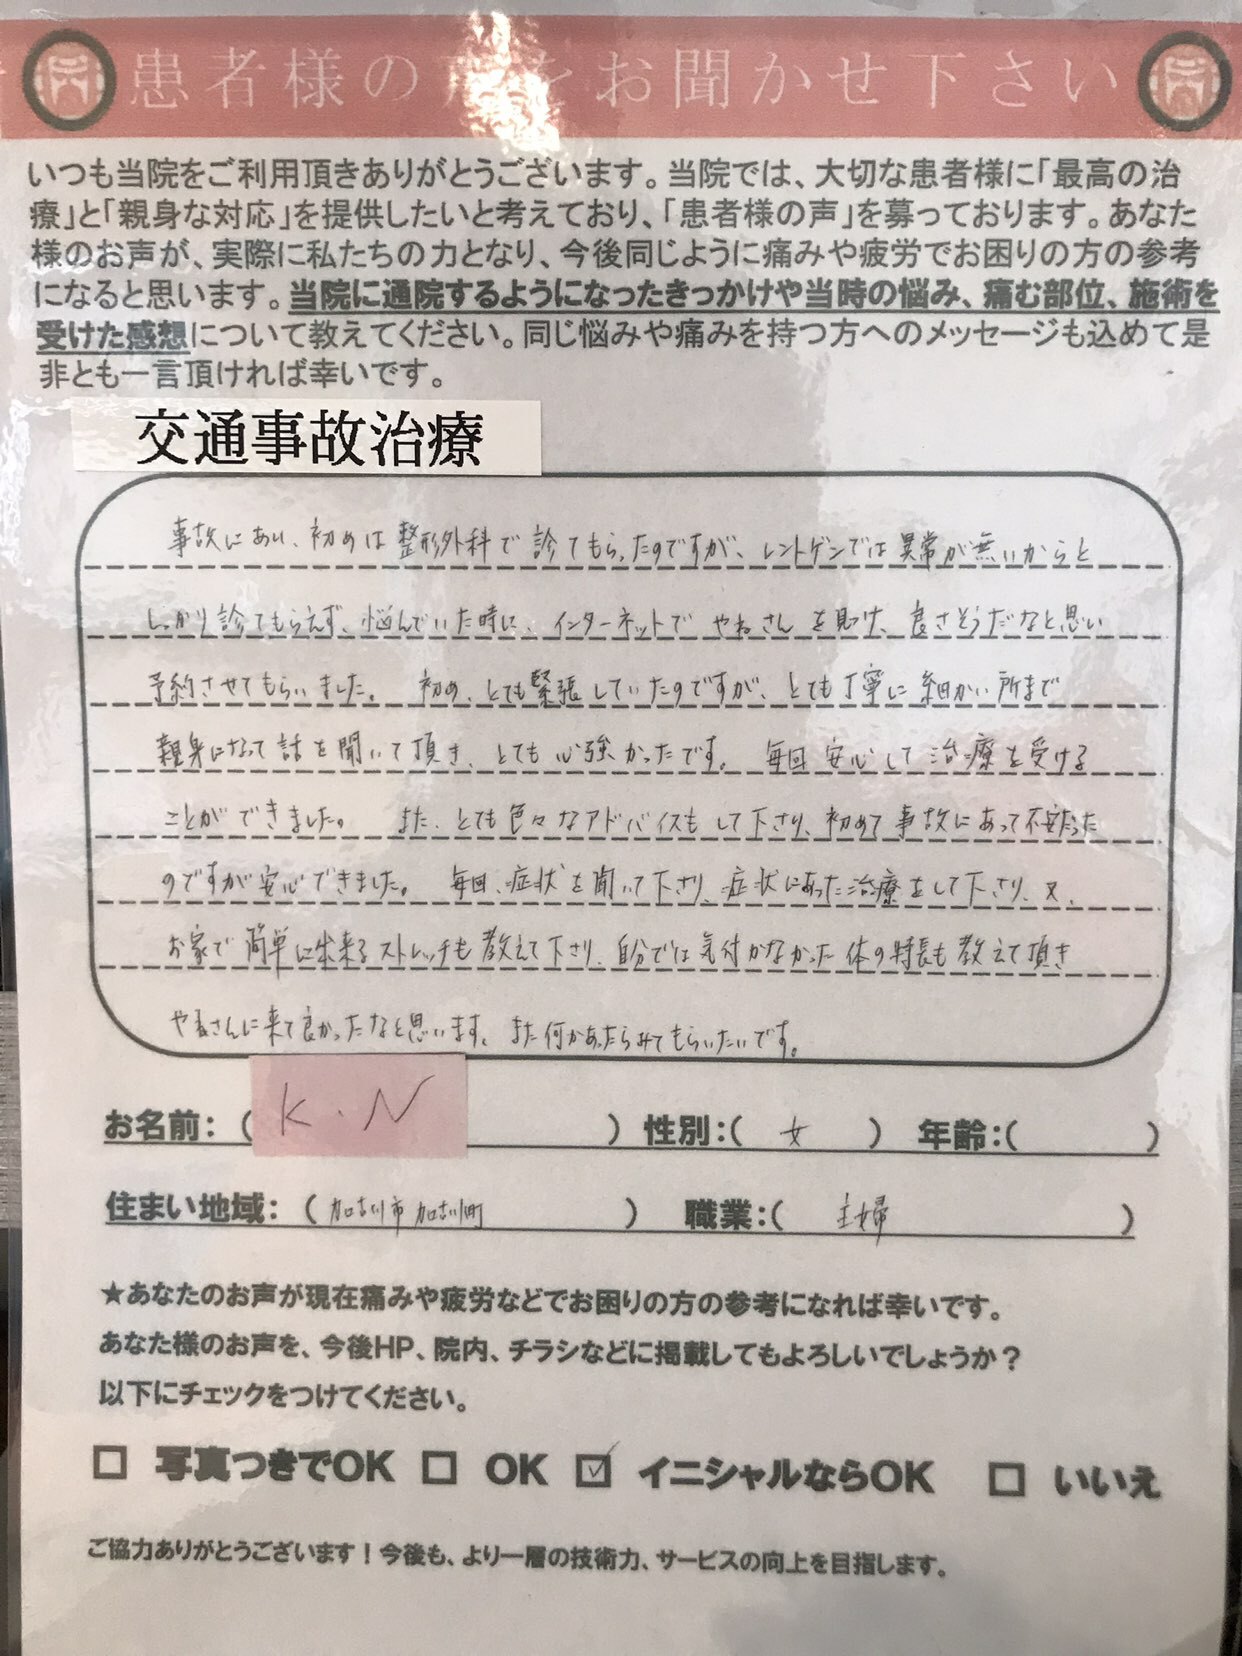 患者様の声をお聞かせ下さい
いつも当院をご利用頂きありがとうございます。当院では、大切な患者様に「最高の治
療」と「親身な対応」を提供したいと考えており、「患者様の声」を募っております。あなた
様のお声が、実際に私たちの力となり、今後同じように痛みや疲労でお困りの方の参考
になると思います。当院に通院するようになったきっかけや当時の悩み、痛む部位、施術を
受けた感想について教えてください。同じ悩みや痛みを持つ方へのメッセージも込めて是
非とも一言頂ければ幸いです。
交通事故治療
事故にあい、初めは整形外科で診てもらったのですが、レントゲンでは異常が無いからと
しっかり診てもらえず、悩んでいた時に、インターネットでやねさんを見つけ、良さそうだなと思い
予約させてもらいました。初め、とても緊張していたのですが、とても丁寧に細かい所まで
親身になって話を聞いて頂き、とても心強かったです。毎回安心して治療を受ける
ことができました。また、とても色々なアドバイスもして下さり、初めて事故にあって不安だった
のですが安心できました。毎回、症状を聞いて下さり、症状にあった治療をして下さり、又、
お家で簡単に出来るストレッチも教えて下さり、自分では気付かなかった体の特長も教えて頂き
やねさんに来て良かったなと思います。また何かあったらみてもらいたいです。
お名前：（K.N）性別：（女）年齢：（）
住まい地域：（加古川市加古川町）職業：（主婦）
★あなたのお声が現在痛みや疲労などでお困りの方の参考になれば幸いです。
あなた様のお声を、今後HP、院内、チラシなどに掲載してもよろしいでしょうか？
以下にチェックをつけてください。
□ 写真つきでOK □ OK ☑ イニシャルならOK □ いいえ
ご協力ありがとうございます！今後も、より一層の技術力、サービスの向上を目指します。